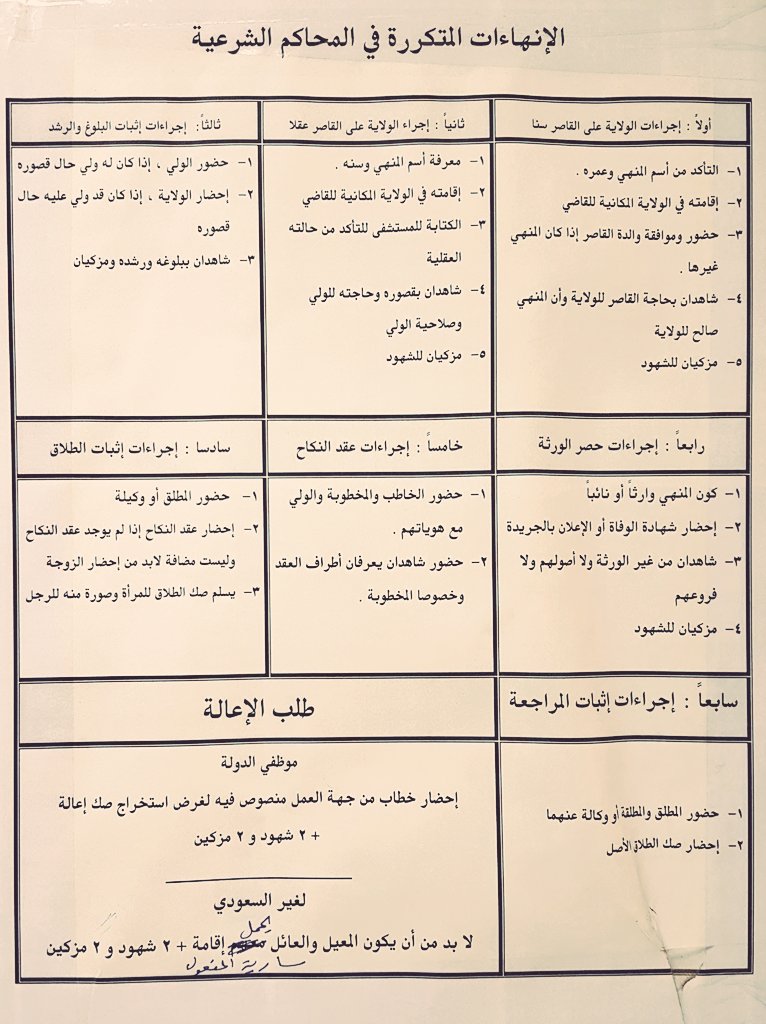 الإنهاءات المتكررة في المحاكم الشرعية
أولاً : إجراءات الولاية على القاصر سنا
١- التأكد من أسم المنهي وعمره .
٢- إقامته في الولاية المكانية للقاضي
٣- حضور وموافقة والدة القاصر إذا كان المنهي
غيرها .
٤- شاهدان بحاجة القاصر للولاية وأن المنهي
صالح للولاية
٥- مزكيان للشهود
ثانياً : إجراء الولاية على القاصر عقلا
١- معرفة أسم المنهي وسنه .
٢- إقامته في الولاية المكانية للقاضي
٣- الكتابة للمستشفى للتأكد من حالته
العقلية
٤- شاهدان بقصوره وحاجته للولي
وصلاحية الولي
٥- مزكيان للشهود
ثالثاً: إجراءات إثبات البلوغ والرشد
١- حضور الولي ، إذا كان له ولي حال قصوره
٢- إحضار الولاية ، إذا كان قد ولي عليه حال
قصوره
٣- شاهدان ببلوغه ورشده ومزكيان
رابعاً : إجراءات حصر الورثة
١- كون المنهي وارثاً أو نائباً
٢- إحضار شهادة الوفاة أو الإعلان بالجريدة
٣- شاهدان من غير الورثة ولا أصولهم ولا
فروعهم
٤- مزكيان للشهود
خامساً : إجراءات عقد النكاح
١- حضور الخاطب والمخطوبة والولي
مع هوياتهم .
٢- حضور شاهدان يعرفان أطراف العقد
وخصوصا المخطوبة .
سادسا : إجراءات إثبات الطلاق
١- حضور المطلق أو وكيلة
٢- إحضار عقد النكاح إذا لم يوجد عقد النكاح
وليست مضافة لابد من إحضار الزوجة
٣- يسلم صك الطلاق للمرأة وصورة منه للرجل
سابعاً : إجراءات إثبات المراجعة
١- حضور المطلق والمطلقة أو وكالة عنهما
٢- إحضار صك الطلاق الأصل
طلب الإعالة
موظفي الدولة
إحضار خطاب من جهة العمل منصوص فيه لغرض استخراج صك إعالة
+ ٢ شهود و ٢ مزكين
لغير السعودي
يحمل
لا بد من أن يكون المعيل والعائل إقامة + ٢ شهود و ٢ مزكين
سارية المفعول